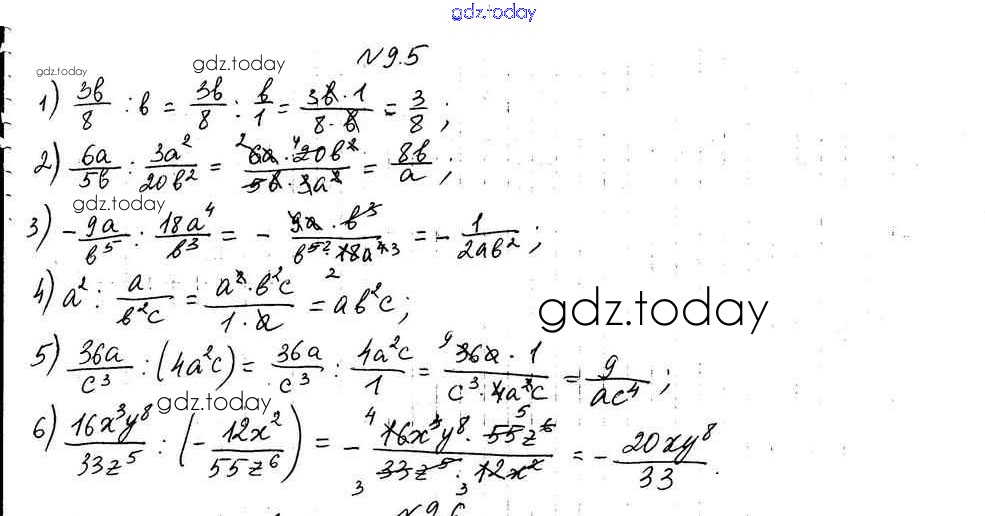 gdz.today
№9.5
gdz.today
gdz.today
1) 3b/8 : b = 3b/8 : b/1 = 3b·1/8·b = 3/8 ;
2) 6a/5b : 3a²/20b² = 6a·20b²/5b·3a² = 8b/a ;
gdz.today
3) -9a/b⁵ : 18a⁴/b³ = - 9a·b³/b⁵·18a⁴ = - 1/2ab² ;
4) a² : a/b²c = a²·b²c/1·a = ab²c ;
gdz.today
5) 36a/c³ : (4a²c) = 36a/c³ : 4a²c/1 = 36a·1/c³·4a²c = 9/ac⁴ ;
gdz.today
6) 16x³y⁸/33z⁵ : (- 12x²/55z⁶) = - 16x³y⁸·55z⁶/33z⁵·12x² = - 20xy⁸/33 .
№9.6